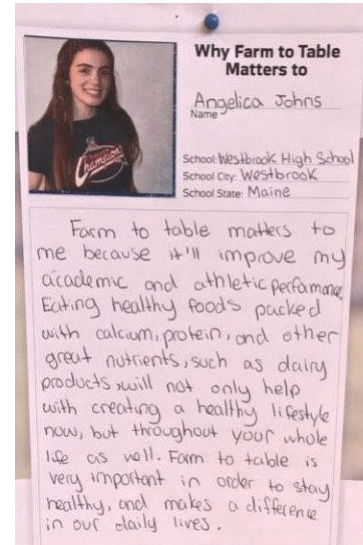 Why Farm to Table
Matters to
Angelica Johns
Name
School: Westbrook High School
School City: Westbrook
School State: Maine
Champion
Farm to table matters to
me because it'll improve my
academic and athletic perfomance.
Eating healthy foods packed
with calcium, protein, and other
great nutrients, such as dairy
products, will not only help
with creating a healthy lifestyle
now, but throughout your whole
life as well. Farm to table is
very important in order to stay
healthy, and makes a difference
in our daily lives.